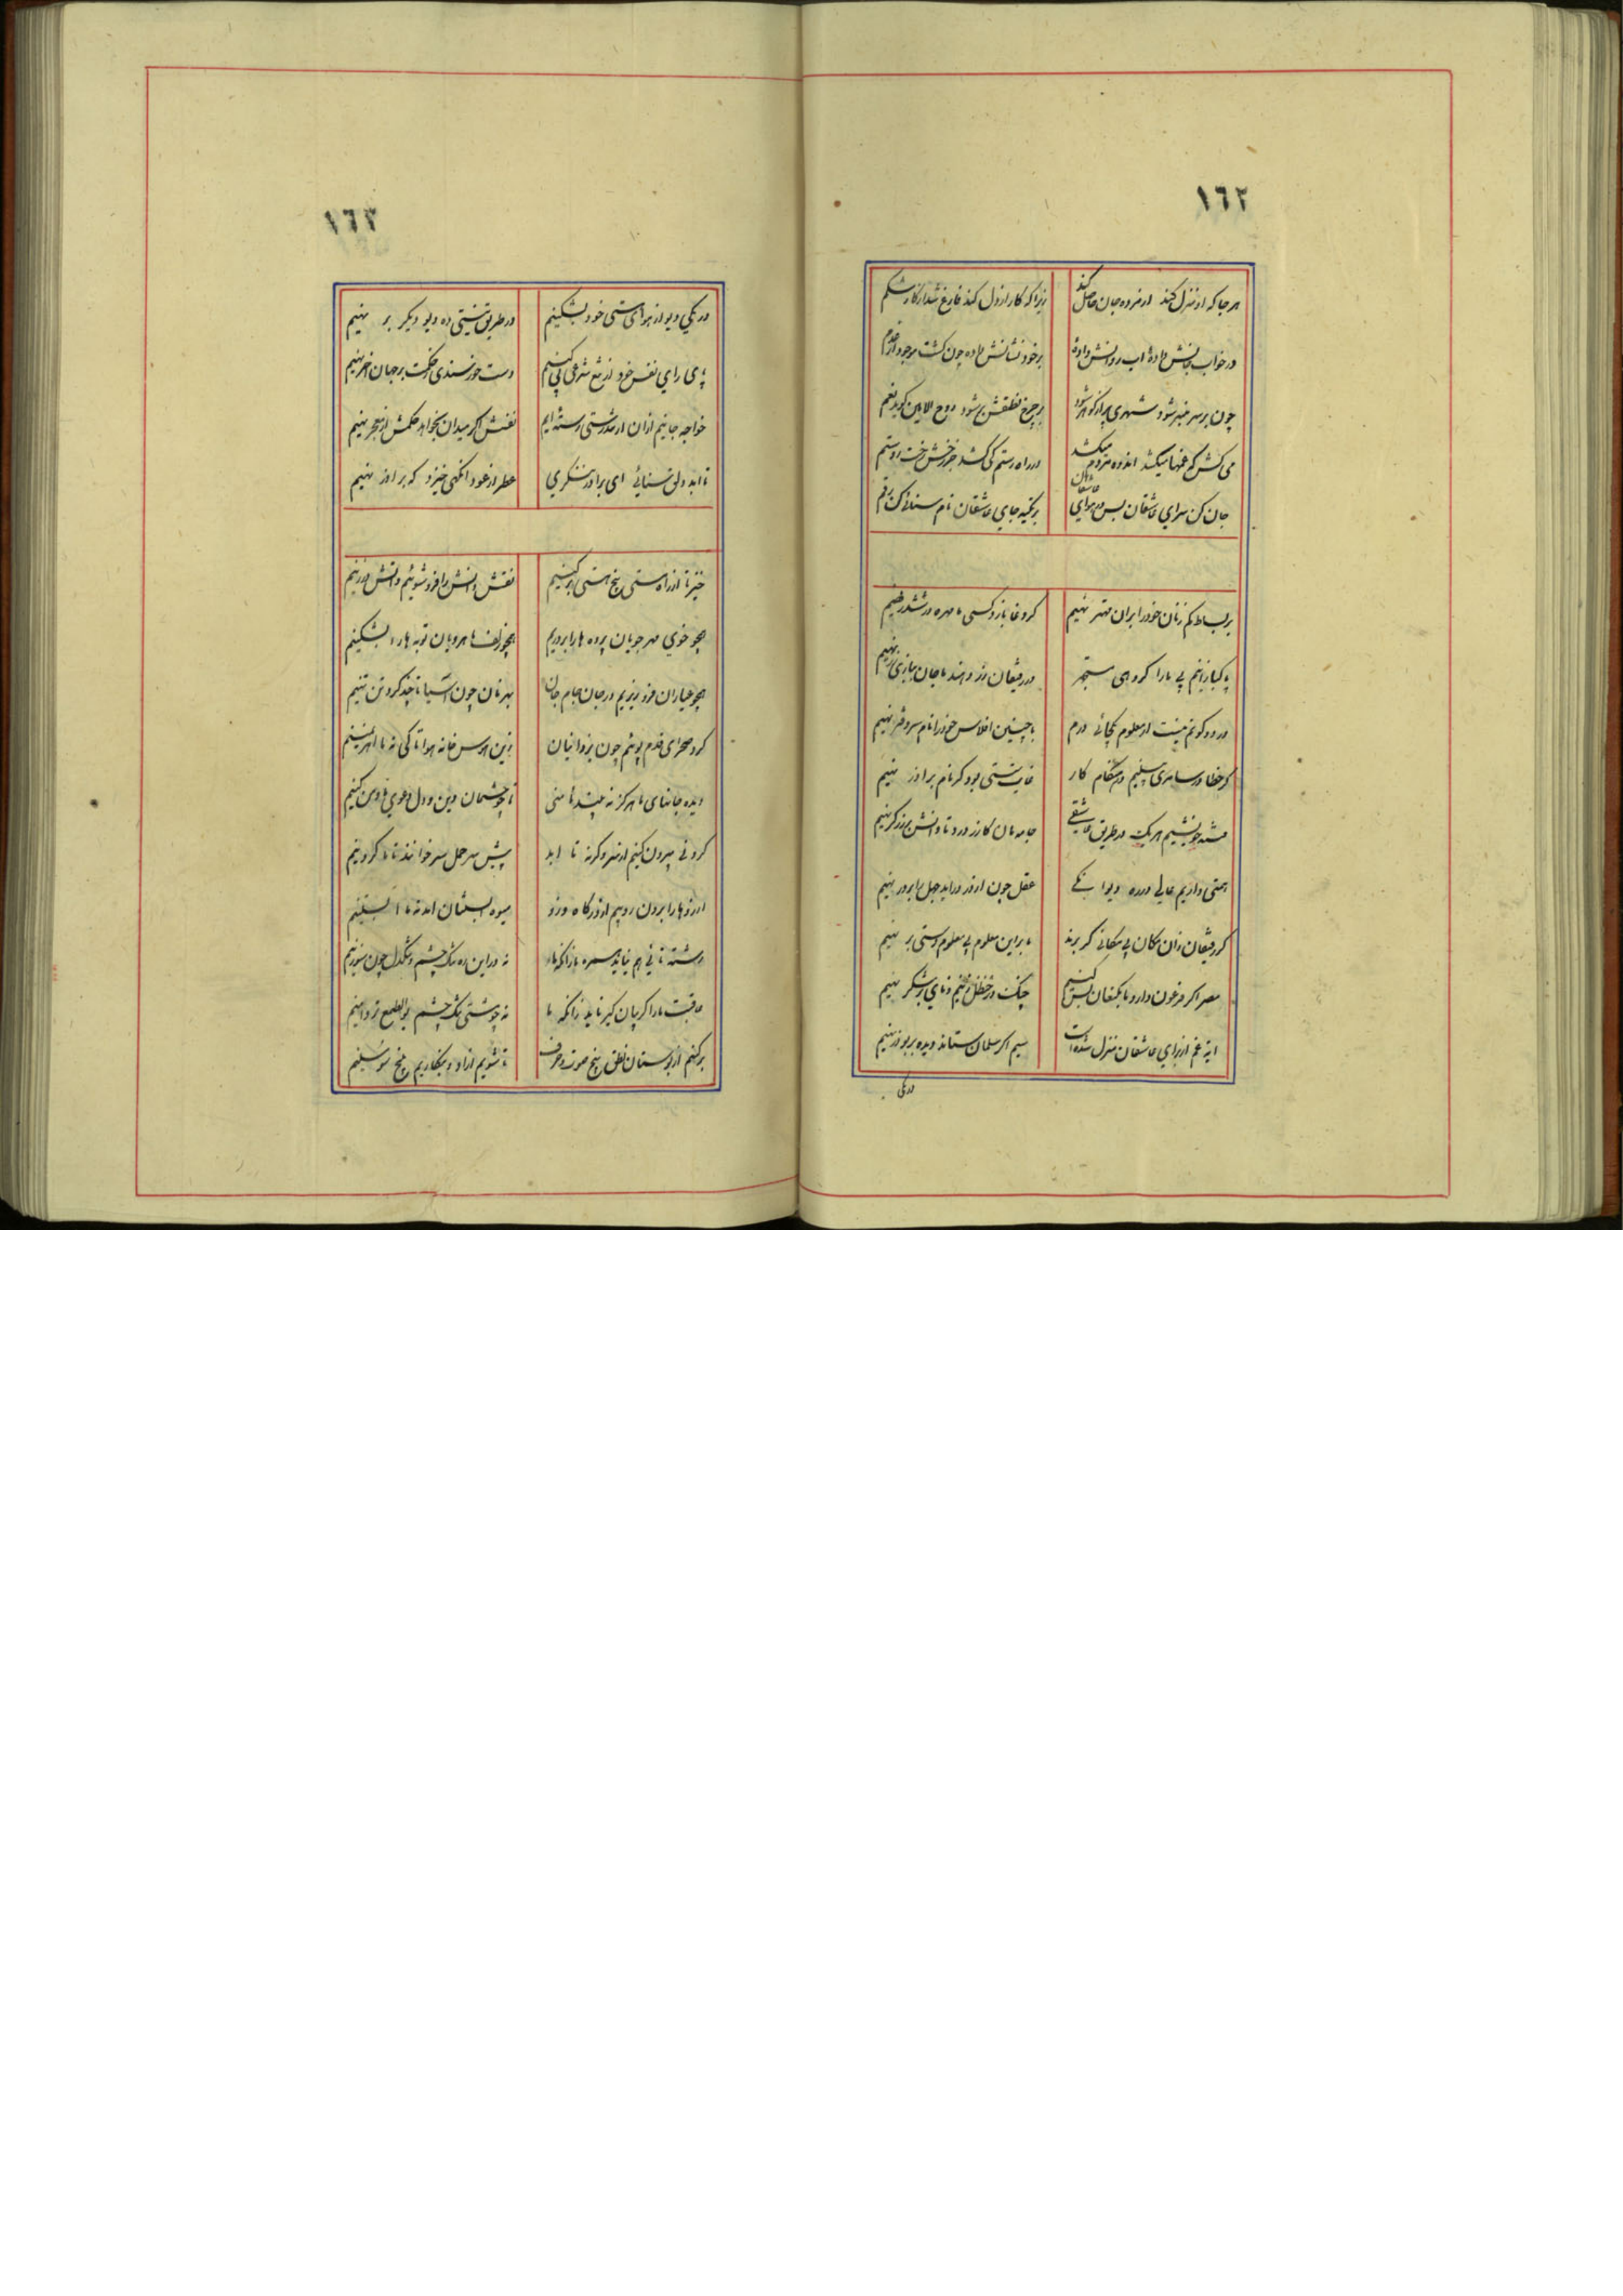 ١٦٢
هر جا که او منزل کند از مرده جان حاصل کند زیرا که کار از دل کند فارغ شد از کار شکم
در خواب جانش داده آب روانش داده بر خود نشانش داده چون گشت موجود از عدم
چون بر سر منبر شود شهری پر از گوهر شود بر چرخ نطقش بر شود روح الامین گوید نعم
می کش که غمها میکشد اندوه مردم میکشد در راه رستم کی کشد جز رخش رخت روستم
جان کن سرای عاشقان بس در سرای عاشقان بر تکیه جای عاشقان نام سنائی کن رقم
بر بساط کم زنان خود را بران مهتر نهیم گر دغا بازد کسی ما مهره در ششدر نهیم
پاکبازانیم بی ما را گروهی سیمبر ور رفیقان زر دهند ما جان بیازی بر نهیم
در دو کونم نیست از معلوم یکتائی درم با چنین افلاس خود را نام سر دفتر نهیم
گر خطا در ساحری بینیم در هنگام کار غایت سستی بود گر نام بر آذر نهیم
تشنه چو باشیم هر یک در طریق عاشقی جامه مان گازر درد تاوانش بر زرگر نهیم
همتی داریم عالی در ره دیوانگی عقل چون از در درآید جهل را بر در نهیم
گر رفیقان زان مکان بی مکانی گر برند ما بر این معلوم بی معلوم دستی بر نهیم
مصر اگر فرعون دارد ما بکنعان بس کنیم چنگ در حنظل زنیم و نای بر شکر نهیم
آیه غم از برای عاشقان منزل شده است سیم اگر سلمان ستاند دیده بر بوذر نهیم
در یکی
١٦٣
در یکی دیو از هوای هستی خود بشکنیم در طریق نیستی ده دیو دیگر بر نهیم
پای رای نفس خود از تیغ شرعی پی کنیم دست خورسندی و حکمت بر جهان اختر نهیم
خواجه جانیم ازان از تندرستی رسته ایم نفس اگر میدان بخواهد حکمش از خنجر نهیم
تا ابد دلق سنائی ای برادر ننگری عطر از عود آنگهی خیزد که بر آذر نهیم
خیز تا از راه مستی بیخ هستی بر کنیم نقش دانش را فرو شوییم و آتش در زنیم
همچو خوی مهر جویان پرده ها را بر دریم همچو زلف ماهرویان توبه ها را بشکنیم
همچو عیاران فرو ریزیم در جان جام جان بهر نان چون آسیا تا چند گرد تن تنیم
گرد صحرای قدم پوئیم چون یزدانیان زین هوس خانه هوا تا کی نه ما اهریمنیم
دیده جانهای ما هرگز نه بیند تا منی تا چو چشمان دین و دل دعوی ما و من کنیم
گردنی بیرون کنیم از سر وگرنه تا ابد پیش سر حمل سر خوانند تا ما گردنیم
آرزوها را برون روبیم از درگاه درو میوه بستان اندیشه ما آبستنیم
رشته تائی هم نیاید بهره ما زانکه ما نه در این ره تنگ چشم و تنگدل چون سوزنیم
عاقبت ما را گریبان گیر ناید زانکه ما نه چو مشتی تنگ چشم بوالطمع تر دامنیم
بر کنیم از بوستان نطق بیخ صوت و حرف تا شویم آزاد و بنگاریم بیخ سوسنیم